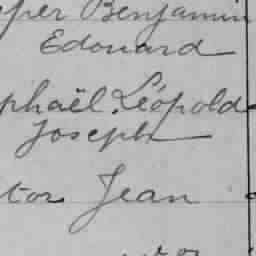 per Benjamin
Edouard
phaël Léopold
Joseph
tor Jean